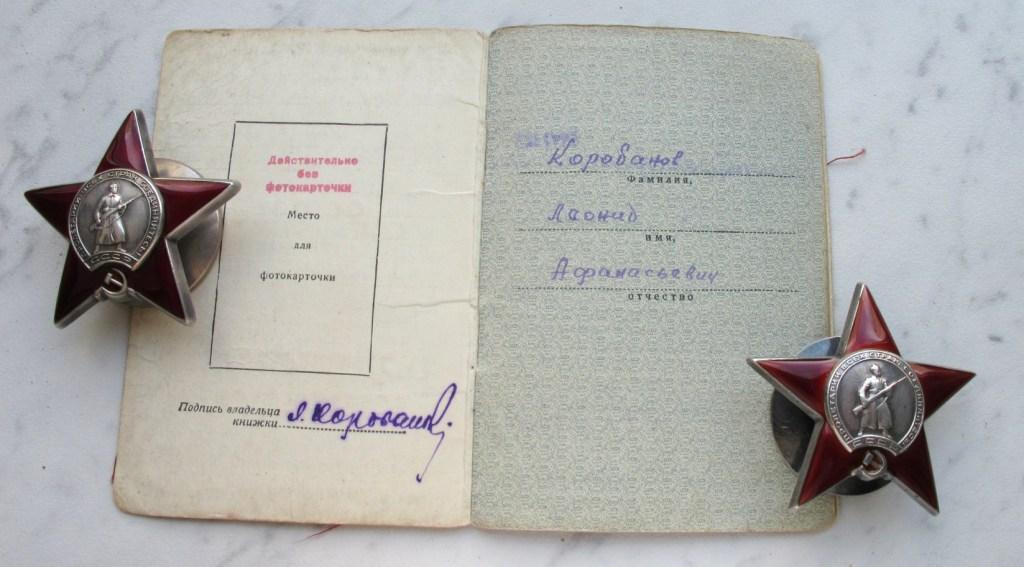 Действительно
без
фотокарточки
Место
для
фотокарточки
Подпись владельца
книжки
Л. Коробанов
Коробанов
Фамилия,
Леонид
имя,
Афанасьевич
отчество
ПРОЛЕТАРИИ ВСЕХ СТРАН, СОЕДИНЯЙТЕСЬ!
СССР
ПРОЛЕТАРИИ ВСЕХ СТРАН, СОЕДИНЯЙТЕСЬ!
СССР